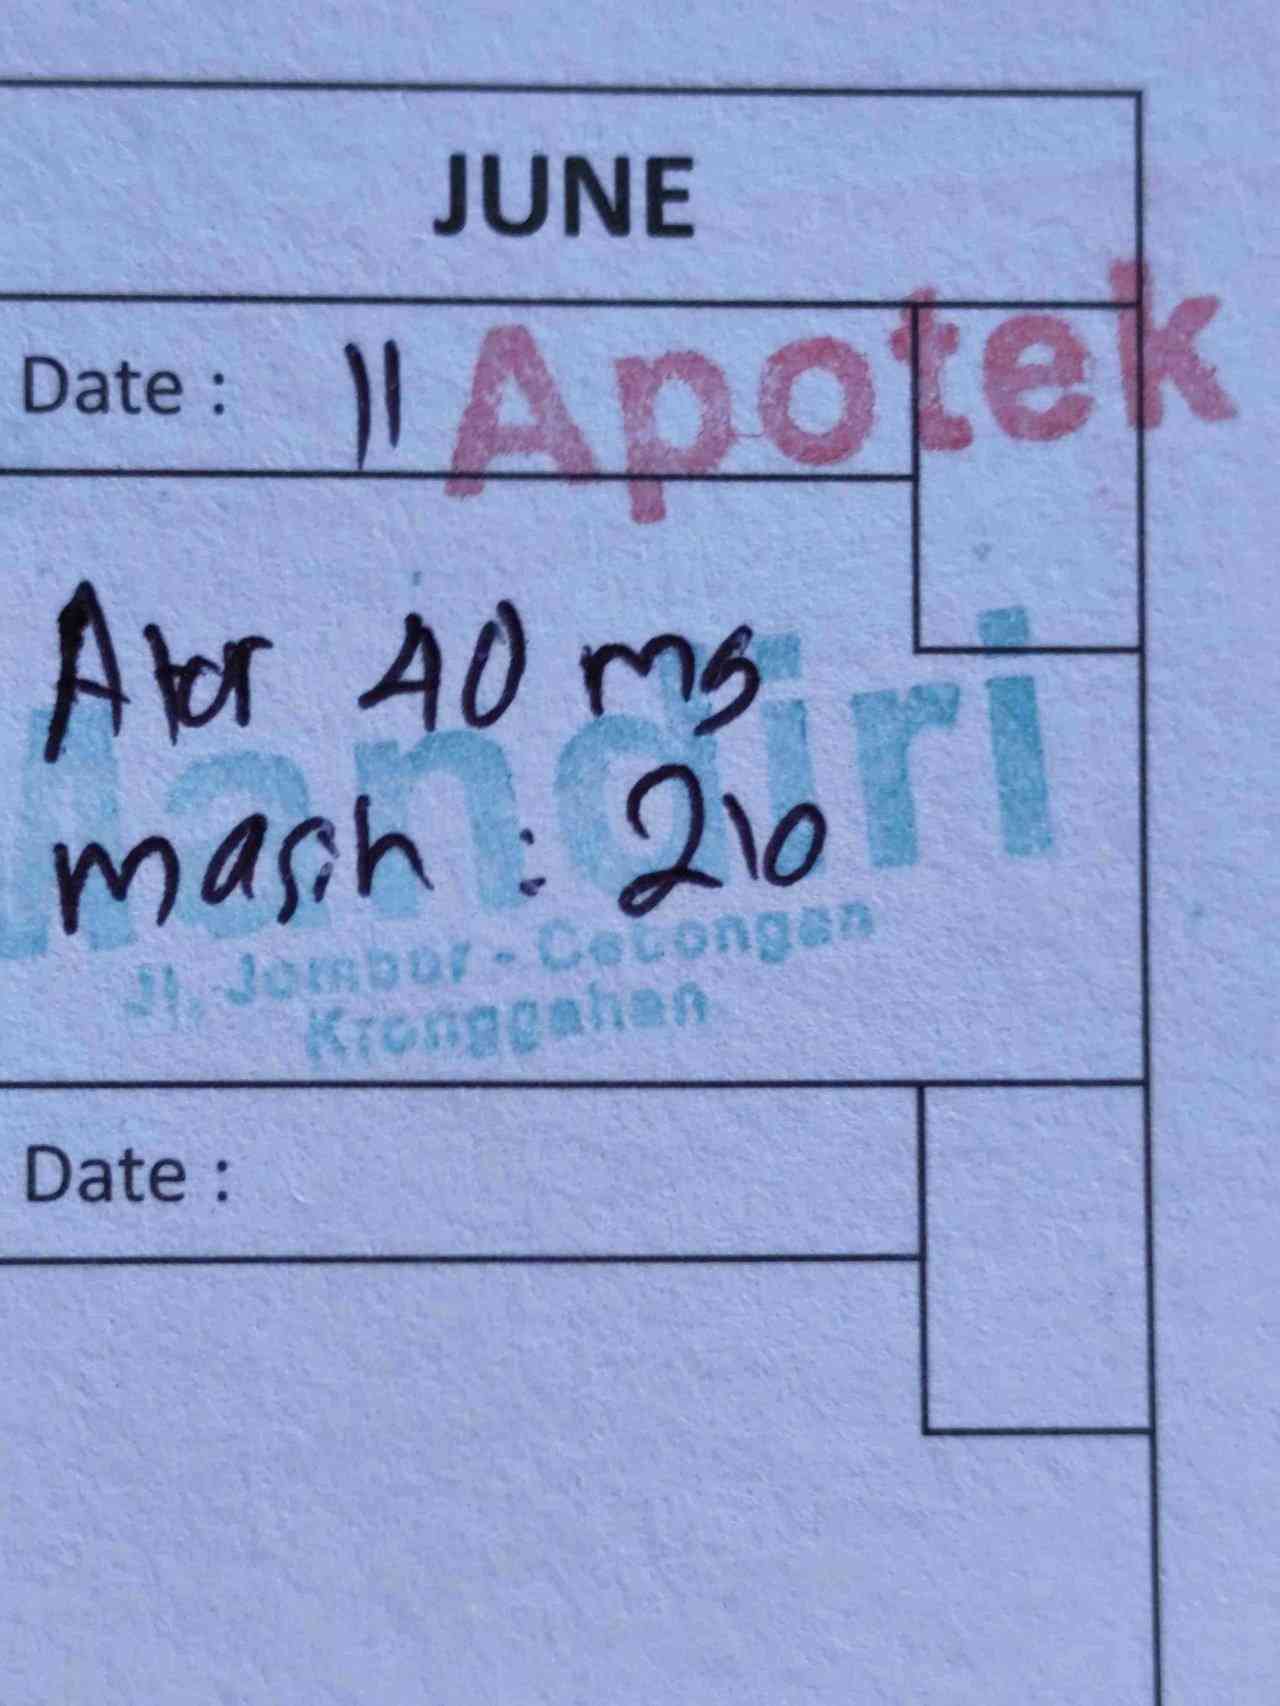 JUNE
Date : 11
Apotek
Ator 40 mg
Mandiri
masih : 210
Jl. Jombor - Cebongan
Kronggahan
Date :